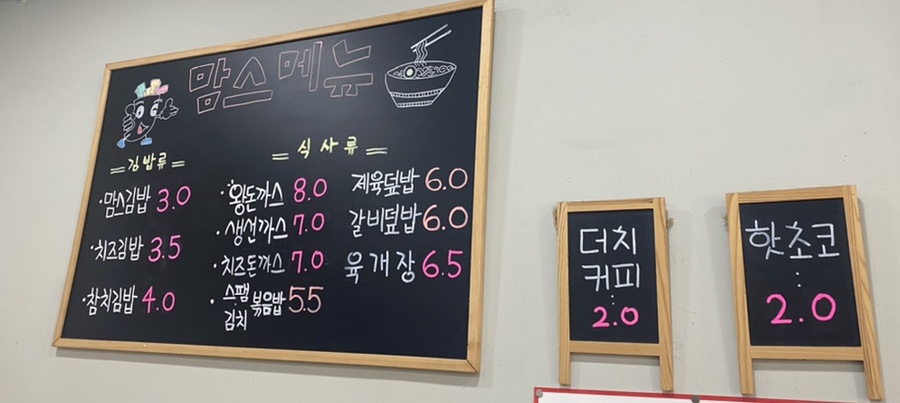 맘스메뉴
=김밥류=
·맘스김밥 3.0
·치즈김밥 3.5
·참치김밥 4.0
=식사류=
·왕돈까스 8.0
·생선까스 7.0
·치즈돈까스 7.0
·스팸김치볶음밥 5.5
제육덮밥 6.0
갈비덮밥 6.0
육개장 6.5
더치
커피
:
2.0
핫초코
:
2.0